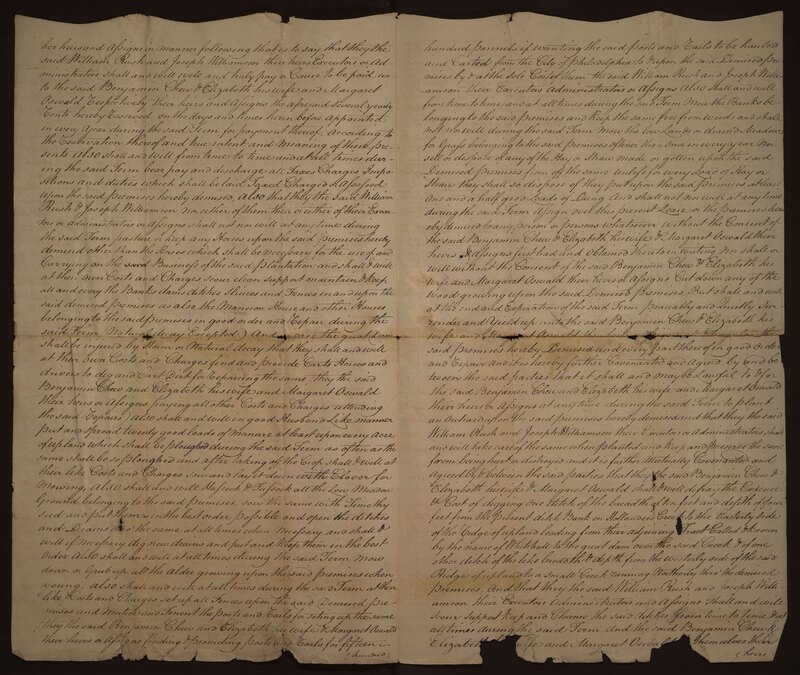 her heirs and Assigns in manner following that is to say that they the
said William Rush and Joseph Williamson their heirs Executors or Ad
ministrators shall and will well and truly pay or Cause to be paid un
to the said Benjamin Chew & Elizabeth his wife and Margaret
Oswald respectively their heirs and Assigns the aforesaid several yearly
Rents hereby Reserved on the days and times herein before appointed
in every Year during the said Term for payment thereof According to
the Reservation thereof and true intent and Meaning of these Pre
sents Also shall and will from time to time and at all times dur
ing the said Term bear pay and discharge all Taxes Charges Impo
sitions and duties which shall be laid Taxed Charged or Assessed
upon the said premises hereby demised, Also that they the said William
Rush & Joseph Williamson nor either of them their or either of their Execu
tors or Administrators or Assigns shall not nor will at any time during
the said Term pasture or keep any Horses upon the said premises hereby
demised other than the Horses which shall be necessary for the use of and
Carrying on the said Business of the said Plantation and shall & will
at their own Costs and Charges scour clean support maintain & keep
all and every the Banks dams ditches Sluices and Fences in and upon the
said demised premises as also the Mansion House and other Houses
belonging to the said premises in good order and Repair during the
said Term (Natural decay Excepted) And in case the great Dam
shall be injured by Storm or Natural decay that they shall and will
at their own Costs and Charges find and provide Carts Horses and
drivers to dig and Cart Dirt for Repairing the same, they the said
Benjamin Chew and Elizabeth his wife and Margaret Oswald
their heirs or Assigns paying all other Costs and Charges attending
the said Repairs, Also shall and will in good Husband Like manner
put and spread twenty good loads of Manure at least upon every Acre
of upland which shall be ploughed during the said Term as often as the
same shall be so ploughed and after taking off the Crop shall & will at
their like Costs and Charges sow and lay it down with Clover for
Mowing, Also shall and will Hassock & Tussock all the Low Meadow
Ground belonging to the said premises, sow the same with Timothy
seed and put them in the best order possible and open the ditches
and Drains into the same at all times when Necessary and shall &
will if Necessary dig new drains and put and keep them in the best
Order Also shall and will at all times during the said Term Mow
down or Grub up all the Alder growing upon the said premises when
young, Also shall and will at all times during the said Term at their
like Costs and Charges set up all Fences upon the said Demised Pre
mises and the posts and Rails for seting up the same
they the said Benjamin Chew and Elizabeth his wife & Margaret Oswald
their heirs or Assigns finding & providing posts and Rails for fifteen
(hundred
hundred pannels if wanting the said posts and Rails to be hauled
and Carted from the City of Philadelphia to & upon the said Demised Pre
mises by & at the sole Cost of them the said William Rush and Joseph Willi
amson their Executors Administrators or Assigns Also shall and will
from time to time and at all times during the said Term Mow the Banks be
longing to the said premises and Keep the same free from weeds and shall
not nor will during the said Term Mow the Low Lands or drained Meadows
for Grass belonging to the said Premises oftener than once in every year Nor
sell or dispose of any of the Hay or Straw made or gotten upon the said
Demised premises from off the same Unless for every Load of Hay or
Straw they shall so dispose of they put upon the said premises at least
One and a half good Loads of Dung And shall not nor will at any time
during the said Term Assign over this present Lease or the premises here
by demised to any person or persons whatsoever without the Consent of
the said Benjamin Chew & Elizabeth his wife & Margaret Oswald their
heirs or Assigns first had and Obtained therein in writing Nor shall or
will without the Consent of the said Benjamin Chew & Elizabeth his
wife and Margaret Oswald their heirs or Assigns Cut down any of the
wood growing upon the said Demised Premises But shall and will
at the end and Expiration of the said Term peaceably and Quietly Sur
render and Yield up unto the said Benjamin Chew & Elizabeth his
wife and Margaret Oswald
the said premises hereby Demised and every part thereof in good order
and Repair And it is hereby further Covenanted and Agreed by and be
tween the said parties that it shall and may be Lawful to & for
the said Benjamin Chew and Elizabeth his wife and Margaret Oswald
their heirs or Assigns at any time during the said Term to plant
an Orchard upon the said premises hereby demised and that they the said
William Rush and Joseph Williamson their Executors or Administrators shall
and will take care of the same when planted and Keep and Preserve the same
from being hurt or destroyed and it is further Mutually Covenanted and
Agreed by & between the said parties that they the said Benjamin Chew &
Elizabeth his wife & Margaret Oswald shall & will defray the Expence
& Cost of digging one ditch of the breadth of ten feet and depth of four
feet from the present ditch Bank on Hollanders Creek to the Easterly side
of the Ridge of upland leading from their adjoining Tract Called & known
by the name of Whitehall to the great dam over the said Creek & of one
other ditch of the like breadth & depth from the westerly side of the said
Ridge of upland to a small Creek running Northerly thro the demised
Premises, And that they the said William Rush and Joseph Willi
amson their Executors Administrators and Assigns shall and will
Scour Support Keep and Cleanse the said ditches from time to time & at
all times during the said Term And the said Benjamin Chew &
Elizabeth his wife and Margaret Oswald for themselves their
(heirs